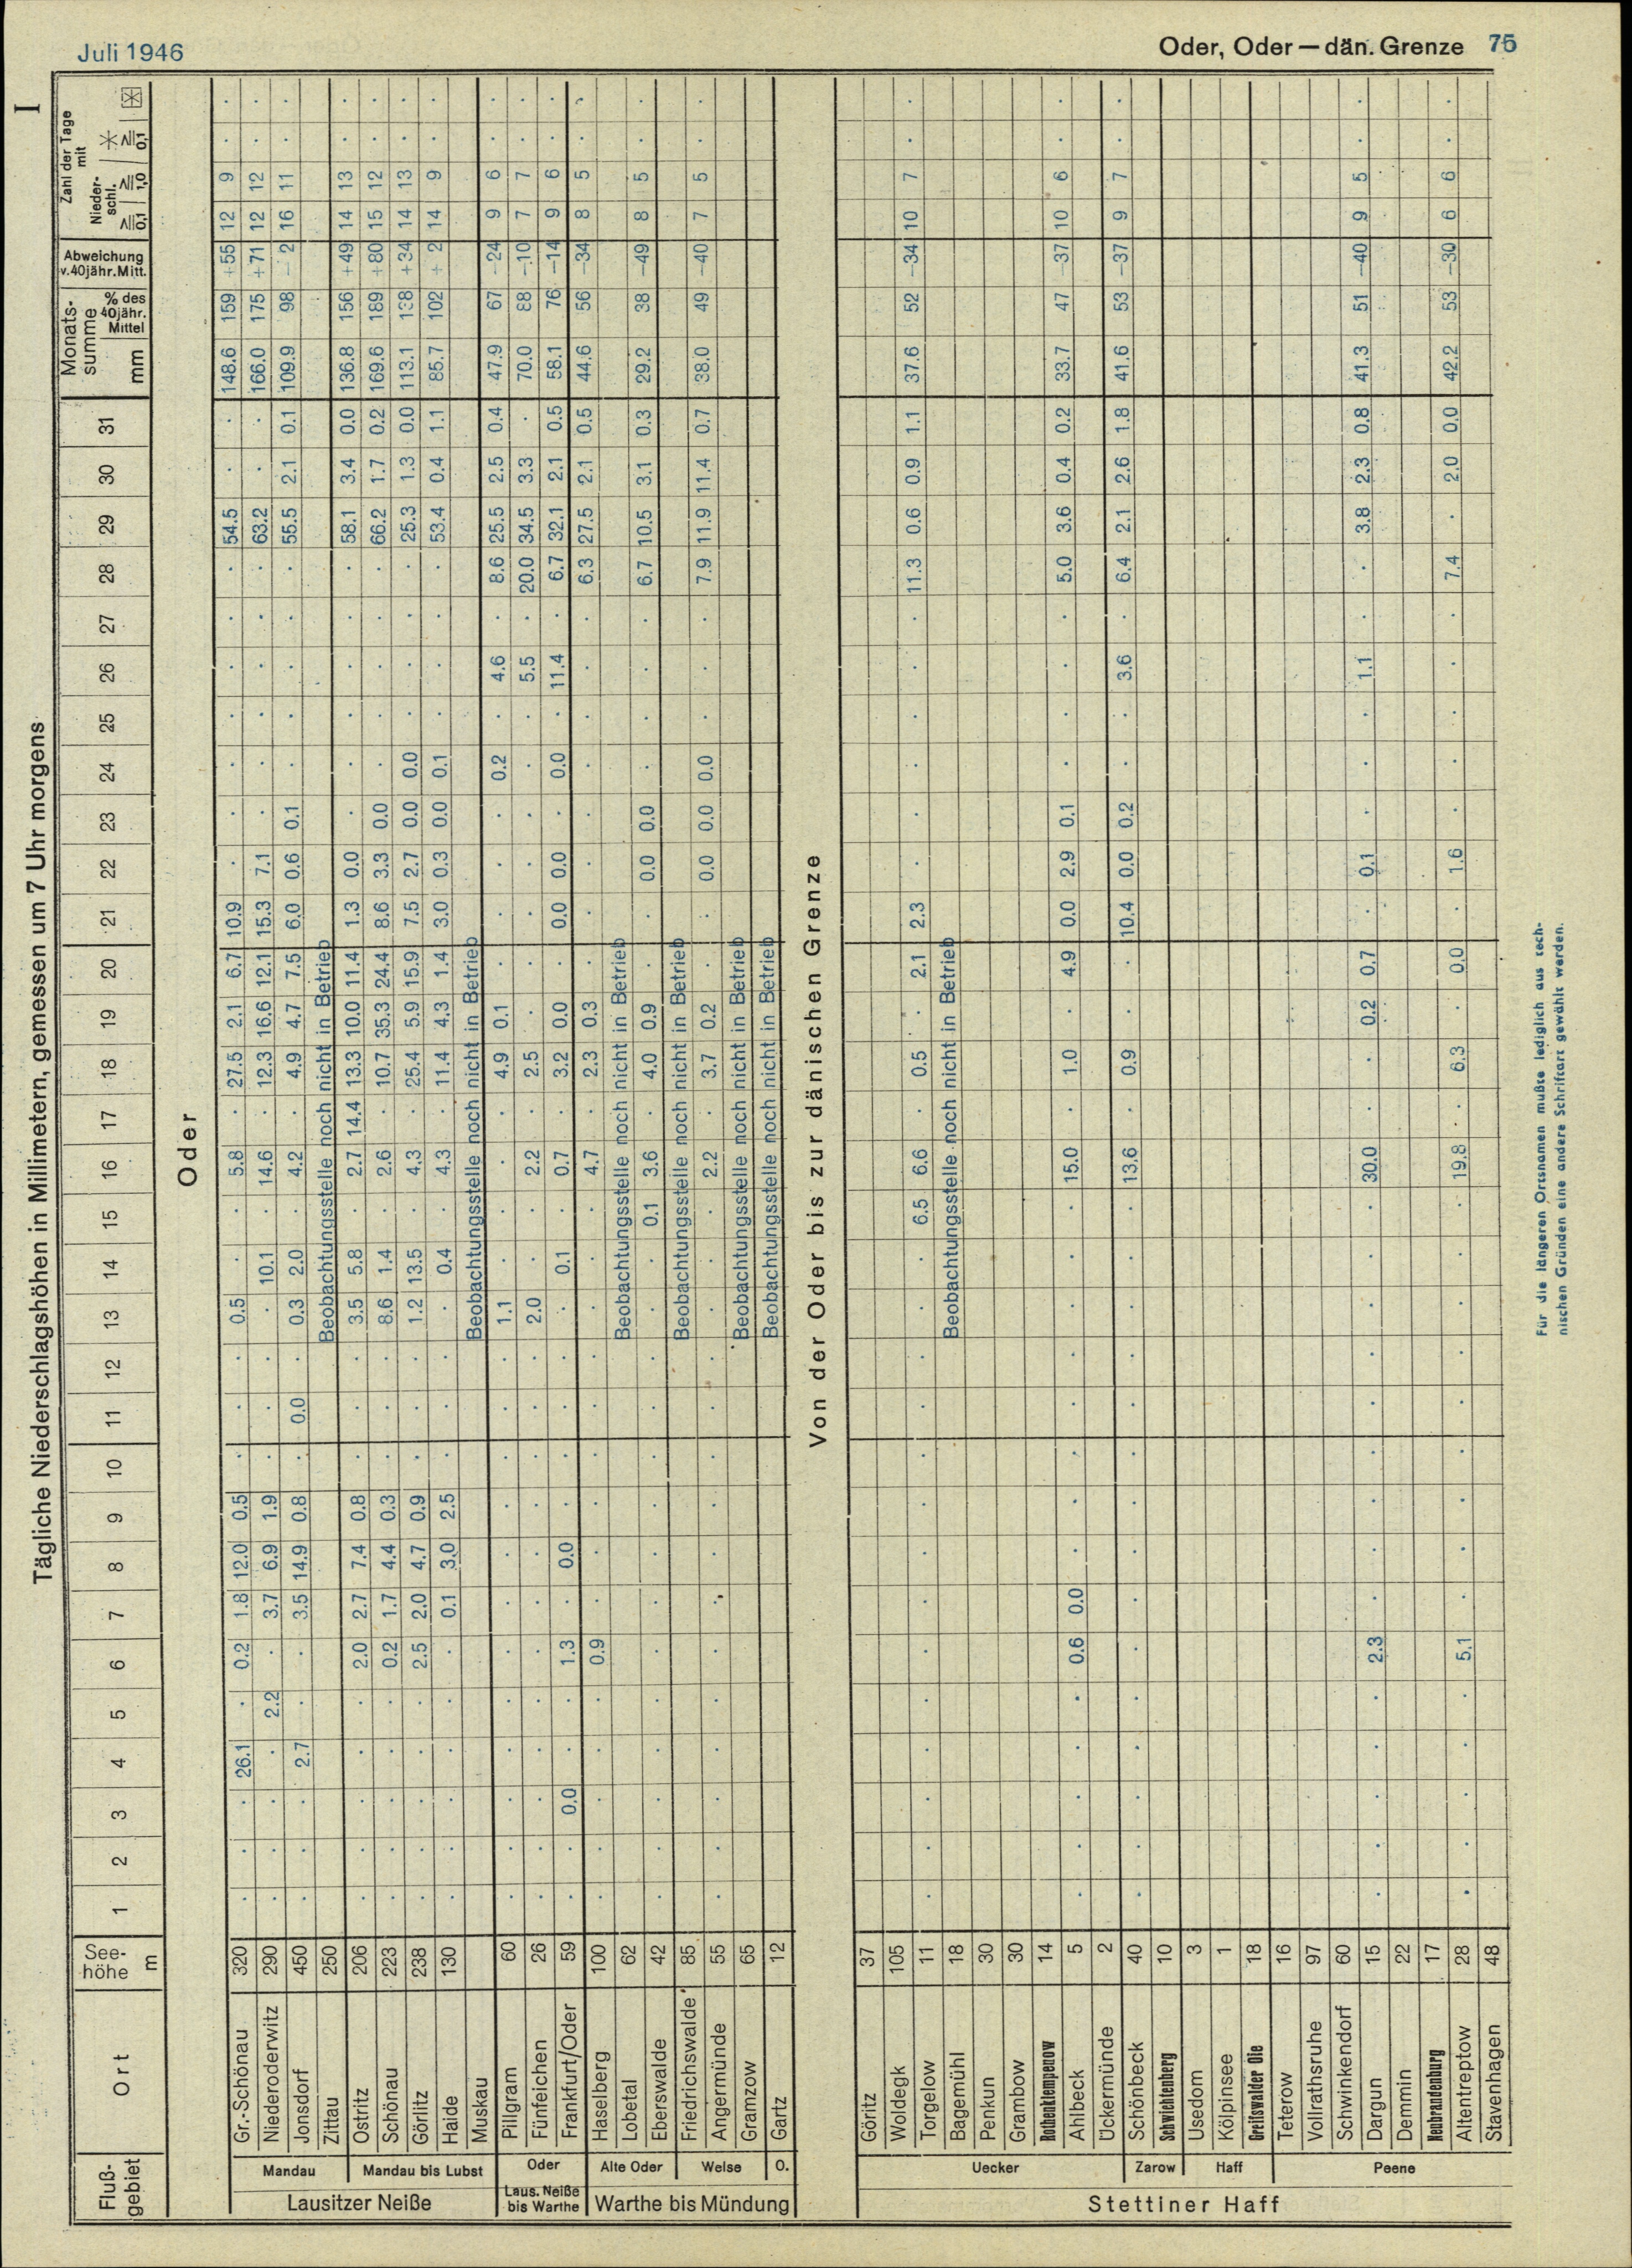 Juli 1946
Oder, Oder — dän. Grenze 75
I
Tägliche Niederschlagshöhen in Millimetern, gemessen um 7 Uhr morgens
Fluß-gebiet Ort See-höhe m 1 2 3 4 5 6 7 8 9 10 11 12 13 14 15 16 17 18 19 20 21 22 23 24 25 26 27 28 29 30 31 Monats-summe mm % des 40jähr. Mittel Abweichung v.40jähr.Mitt. Zahl der Tage mit Nieder-schl. All 0,1 All 1,0 All 0,1
Oder
Lausitzer Neiße
Mandau
Gr.-Schönau 320 . . . 26.1 . 0.2 1.8 12.0 0.5 . . . 0.5 . . 5.8 . 27.5 2.1 6.7 10.9 . . . . . . . 54.5 . . 148.6 159 +55 12 9 . .
Niederoderwitz 290 . . . . 2.2 . 3.7 6.9 1.9 . . . . 10.1 . 14.6 . 12.3 16.6 12.1 15.3 7.1 . . . . . . 63.2 . . 166.0 175 +71 12 12 . .
Jonsdorf 450 . . . 2.7 . . 3.5 14.9 0.8 . 0.0 . 0.3 2.0 . 4.2 . 4.9 4.7 7.5 6.0 0.6 0.1 . . . . . 55.5 2.1 0.1 109.9 98 - 2 16 11 . .
Zittau 250 Beobachtungsstelle noch nicht in Betrieb
Mandau bis Lubst
Ostritz 206 . . . . . 2.0 2.7 7.4 0.8 . . . 3.5 5.8 . 2.7 14.4 13.3 10.0 11.4 1.3 0.0 . . . . . . 58.1 3.4 0.0 136.8 156 +49 14 13 . .
Schönau 223 . . . . . 0.2 1.7 4.4 0.3 . . . 8.6 1.4 . 2.6 . 10.7 35.3 24.4 8.6 3.3 0.0 . . . . . 66.2 1.7 0.2 169.6 189 +80 15 12 . .
Görlitz 238 . . . . . 2.5 2.0 4.7 0.9 . . . 1.2 13.5 . 4.3 . 25.4 5.9 15.9 7.5 2.7 0.0 0.0 . . . . 25.3 1.3 0.0 113.1 138 +34 14 13 . .
Haide 130 . . . . . . 0.1 3.0 2.5 . . . . 0.4 . 4.3 . 11.4 4.3 1.4 3.0 0.3 0.0 0.1 . . . . 53.4 0.4 1.1 85.7 102 + 2 14 9 . .
Muskau Beobachtungsstelle noch nicht in Betrieb
Laus. Neiße bis Warthe
Oder
Pillgram 60 . . . . . . . . . . . . 1.1 . . . . 4.9 0.1 . . . . 0.2 . 4.6 . 8.6 25.5 2.5 0.4 47.9 67 -24 9 6 . .
Fünfeichen 26 . . . . . . . . . . . . 2.0 . . 2.2 . 2.5 . . . . . . . 5.5 . 20.0 34.5 3.3 . 70.0 88 -10 7 7 . .
Frankfurt/Oder 59 . . 0.0 . . 1.3 . 0.0 . . . . . 0.1 . 0.7 . 3.2 0.0 . 0.0 0.0 . 0.0 . 11.4 . 6.7 32.1 2.1 0.5 58.1 76 -14 9 6 . .
Warthe bis Mündung
Alte Oder
Haselberg 100 . . . . . 0.9 . . . . . . . . . 4.7 . 2.3 0.3 . . . . . . . . 6.3 27.5 2.1 0.5 44.6 56 -34 8 5 . .
Lobetal 62 Beobachtungsstelle noch nicht in Betrieb
Eberswalde 42 . . . . . . . . . . . . . . 0.1 3.6 . 4.0 0.9 . . 0.0 0.0 . . . . 6.7 10.5 3.1 0.3 29.2 38 -49 8 5 . .
Welse
Friedrichswalde 85 Beobachtungsstelle noch nicht in Betrieb
Angermünde 55 . . . . . . . . . . . . . . . 2.2 . 3.7 0.2 . . 0.0 0.0 0.0 . . . 7.9 11.9 11.4 0.7 38.0 49 -40 7 5 . .
Gramzow 65 Beobachtungsstelle noch nicht in Betrieb
O.
Gartz 12 Beobachtungsstelle noch nicht in Betrieb
Von der Oder bis zur dänischen Grenze
Stettiner Haff
Uecker
Göritz 37
Woldegk 105
Torgelow 11 . . . . . . . . . . . . . . 6.5 6.6 . 0.5 . 2.1 2.3 . . . . . . 11.3 0.6 0.9 1.1 37.6 52 -34 10 7 . .
Bagemühl 18 Beobachtungsstelle noch nicht in Betrieb
Penkun 30
Grambow 30
Rothenklempenow 14
Ahlbeck 5 . . . . . 0.6 0.0 . . . . . . . . 15.0 . 1.0 . 4.9 0.0 2.9 0.1 . . . . 5.0 3.6 0.4 0.2 33.7 47 -37 10 6 . .
Ückermünde 2
Zarow
Schönbeck 40 . . . . . . . . . . . . . . . 13.6 . 0.9 . . 10.4 0.0 0.2 . . 3.6 . 6.4 2.1 2.6 1.8 41.6 53 -37 9 7 . .
Schwichtenberg 10
Haff
Usedom 3
Kölpinsee 1
Greifswalder Oie 18
Peene
Teterow 16
Vollrathsruhe 97
Schwinkendorf 60
Dargun 15 . . . . . 2.3 . . . . . . . . . 30.0 . . 0.2 0.7 . 0.1 . . . 1.1 . . 3.8 2.3 0.8 41.3 51 -40 9 5 . .
Demmin 22
Neubrandenburg 17
Altentreptow 28 . . . . . 5.1 . . . . . . . . . 19.8 . 6.3 . 0.0 . 1.6 . . . . . 7.4 . 2.0 0.0 42.2 53 -30 6 6 . .
Stavenhagen 48
Für die längeren Ortsnamen mußte lediglich aus tech-
nischen Gründen eine andere Schriftart gewählt werden.